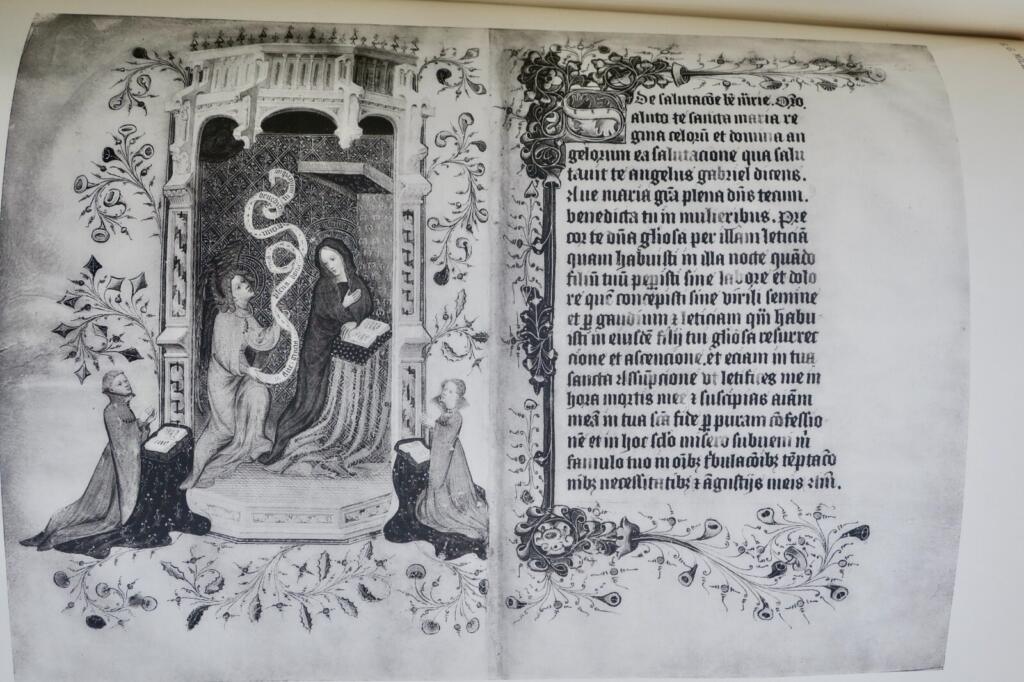 De salutacõe be mrie. Oro.
Saluto te sancta maria re
gina celorũ et domina an
gelorum ea salutacione qua salu
tauit te angelus gabriel dicens.
Aue maria grã plena dñs tecum.
benedicta tu in mulieribus. Pre
cor te dña gliosa per illam leticiã
quam habuisti in illa nocte quãdo
filiũ tuũ peperisti sine labore et dolo
re quẽ concepisti sine virili semine
et p gaudium ⁊ leticiam qm habu
isti in eiusdẽ filij tui gliosa resurrec
cione et ascencione, et eciam in tua
sancta Assũpcione vt letifices me in
hora mortis mee ⁊ suscipias aiam
meã in tua scã fide p puram cõfessio
nẽ et in hoc sclo misero subueni m
famulo tuo in oibꝫ tbulacõibꝫ tẽptacõ
nibꝫ necessitatibꝫ ⁊ ãgustijs meis